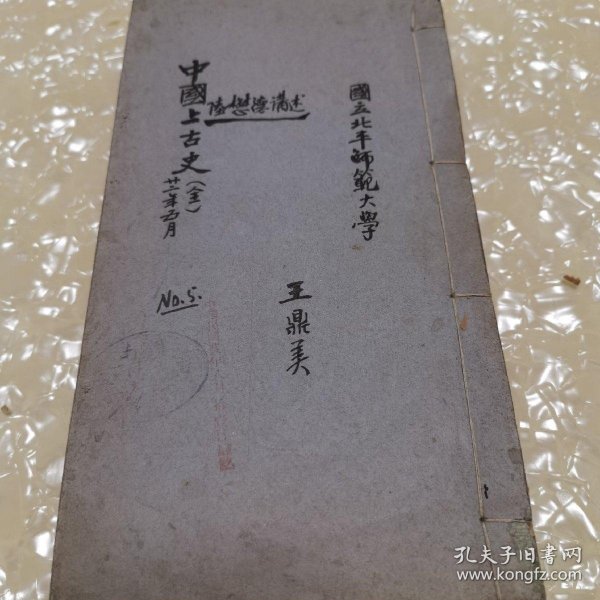 國立北平師範大學
陸懋德講述
中國上古史(全)
廿二年五月
王鼎美
No.5.
孔夫子旧书网
www.kongfz.com